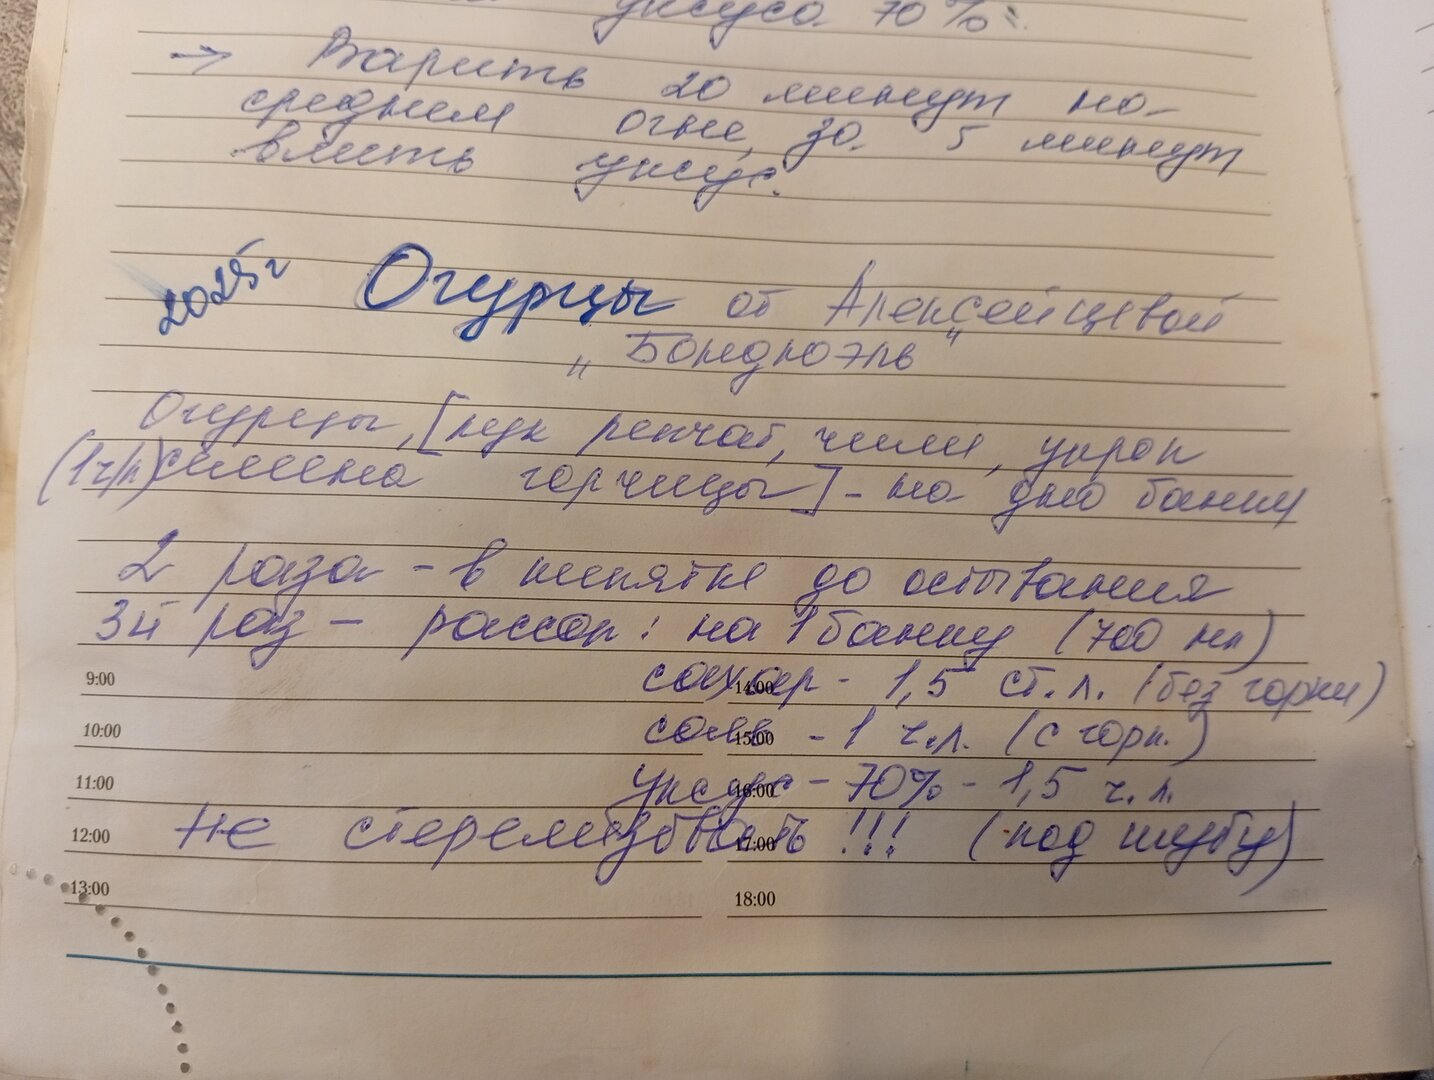 уксуса 70%
→ Варить 20 минут на
среднем огне, за 5 минут
влить уксус.
2025г Огурцы от Алексейцевой
„Бондюэль"
Огурцы, [лук репчат, чили, укроп
(1ч/л) семена горчицы] - на дно банки
2 раза - в кипятке до остывания
3й раз - рассол: на 1 банку (700 мл)
9:00 сахар - 14:00 1,5 ст.л. (без горки)
10:00 соль 15:00 - 1 ч.л. (с горк.)
11:00 уксус 16:00 - 70% - 1,5 ч.л.
12:00 Не стерелизовать 17:00 !!! (под шубу)
13:00 18:00